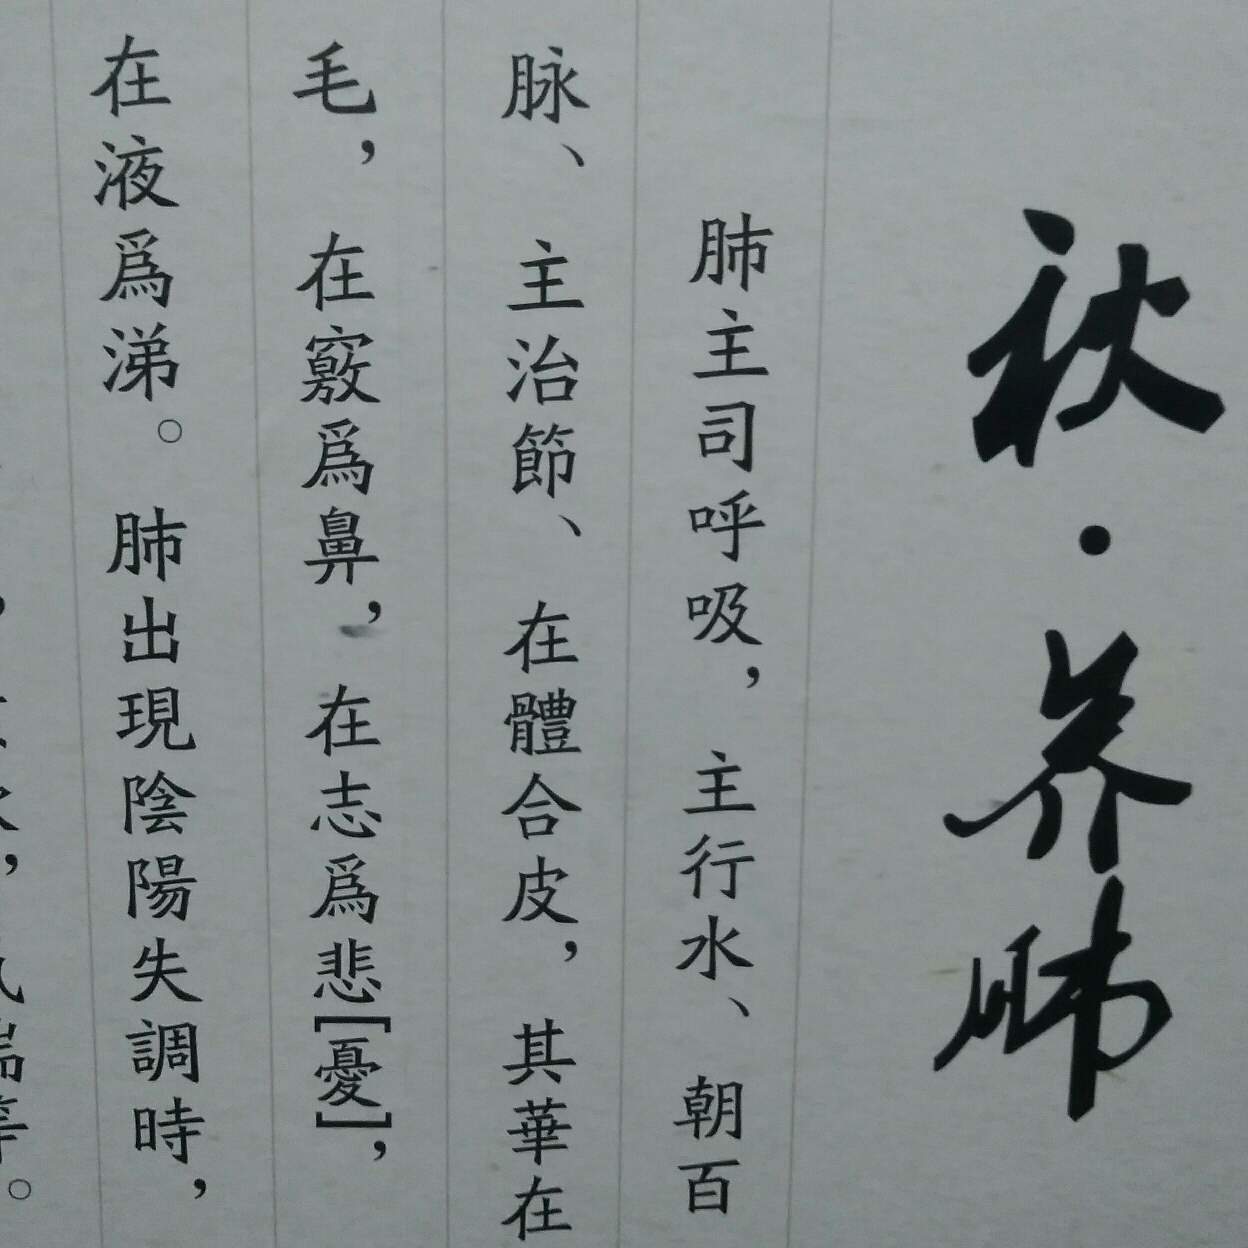 秋·养肺
肺主司呼吸，主行水、朝百
脉、主治節、在體合皮，其華在
毛，在竅爲鼻，在志爲悲[憂]，
在液爲涕。肺出現陰陽失調時，